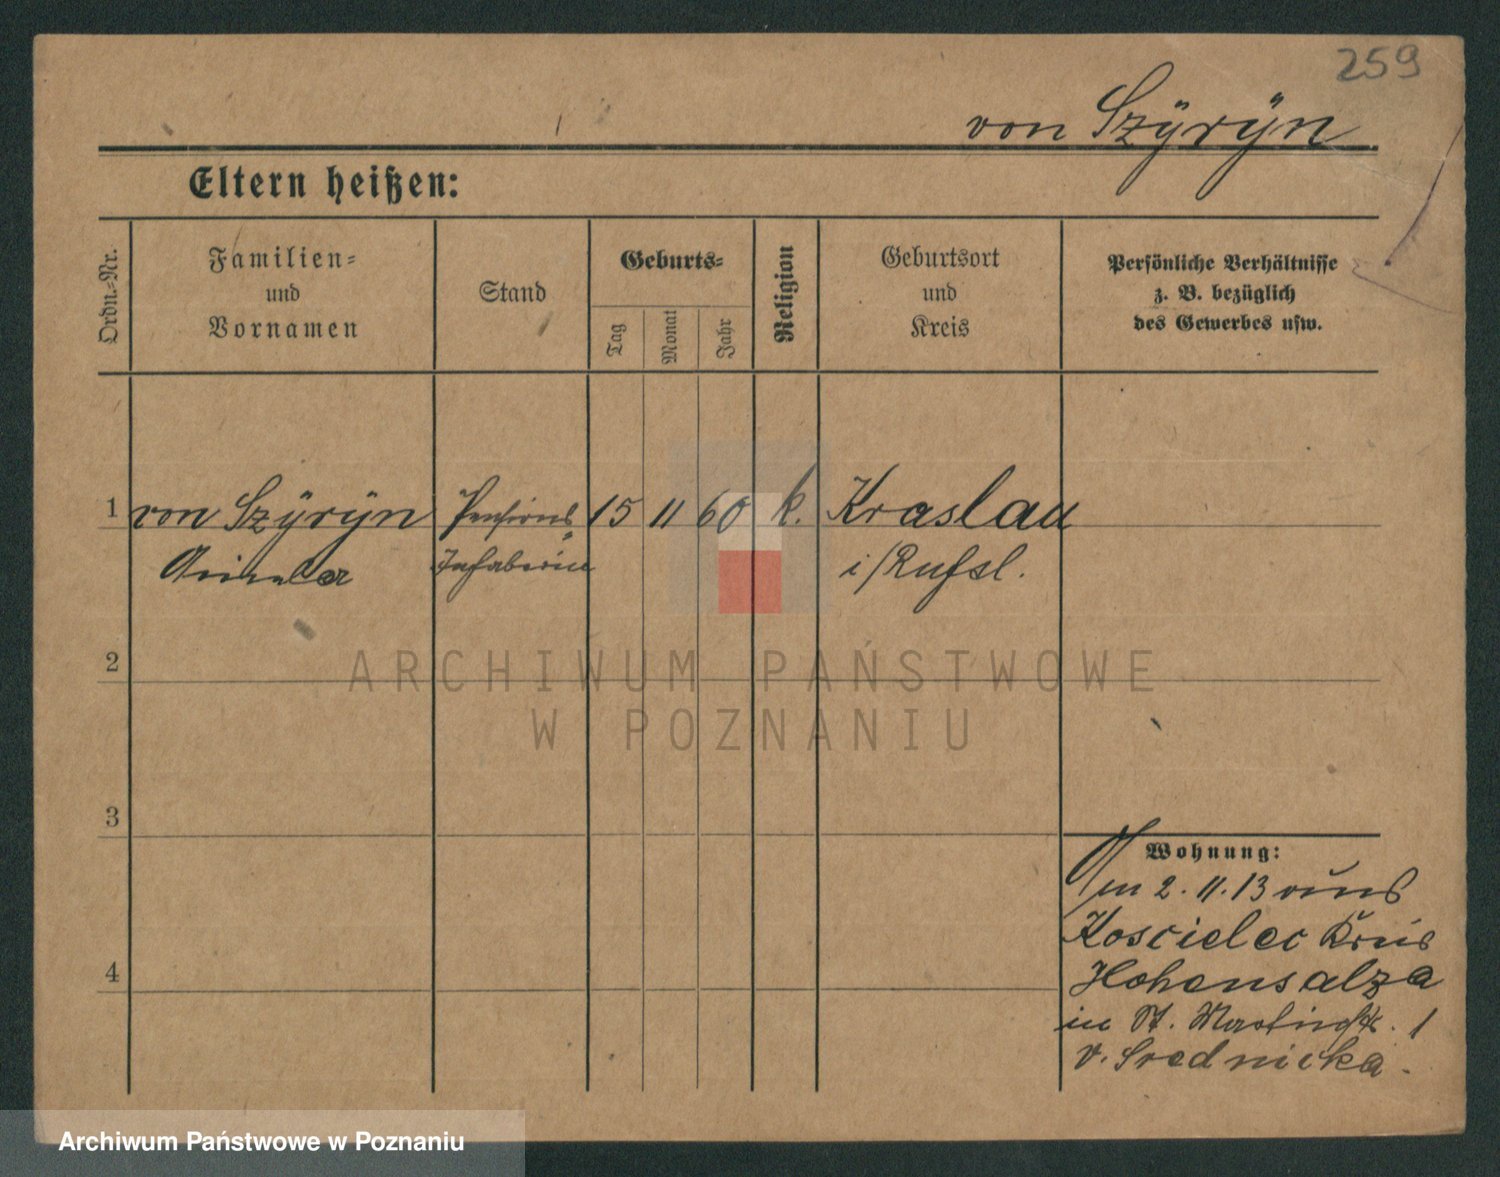 259
von Szÿrÿn
Eltern heißen:
Ordn.-Nr.
Familien-
und
Vornamen
Stand
Geburts-
Tag
Monat
Jahr
Religion
Geburtsort
und
Kreis
Persönliche Verhältnisse
z. B. bezüglich
des Gewerbes usw.
1 von Szÿrÿn Pensions 15 11 60 k. Kraslau
Inhaberin i/Russl.
2
3
4
Wohnung:
Am 2.11.13 aus
Koscielec Kreis
Hohensalza
in St. Martinstr. 1
v. Srednicka.
ARCHIWUM PAŃSTWOWE
W POZNANIU
Archiwum Państwowe w Poznaniu